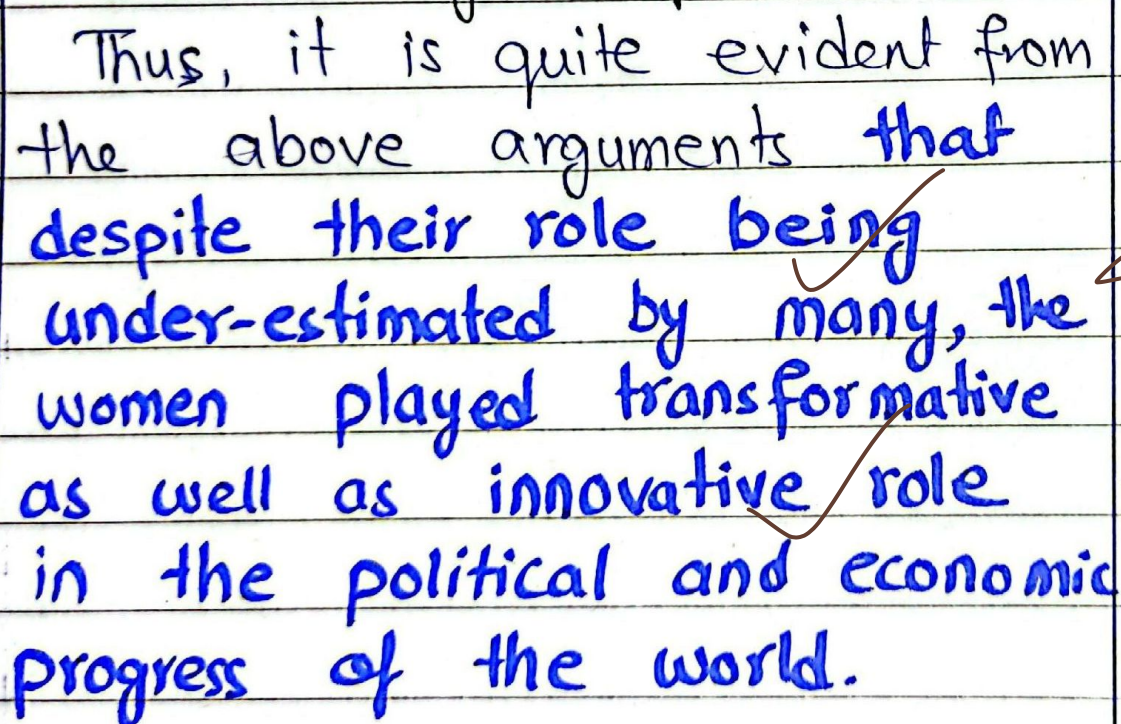 Thus, it is quite evident from
the above arguments that
despite their role being
under-estimated by many, the
women played transformative
as well as innovative role
in the political and economic
progress of the world.